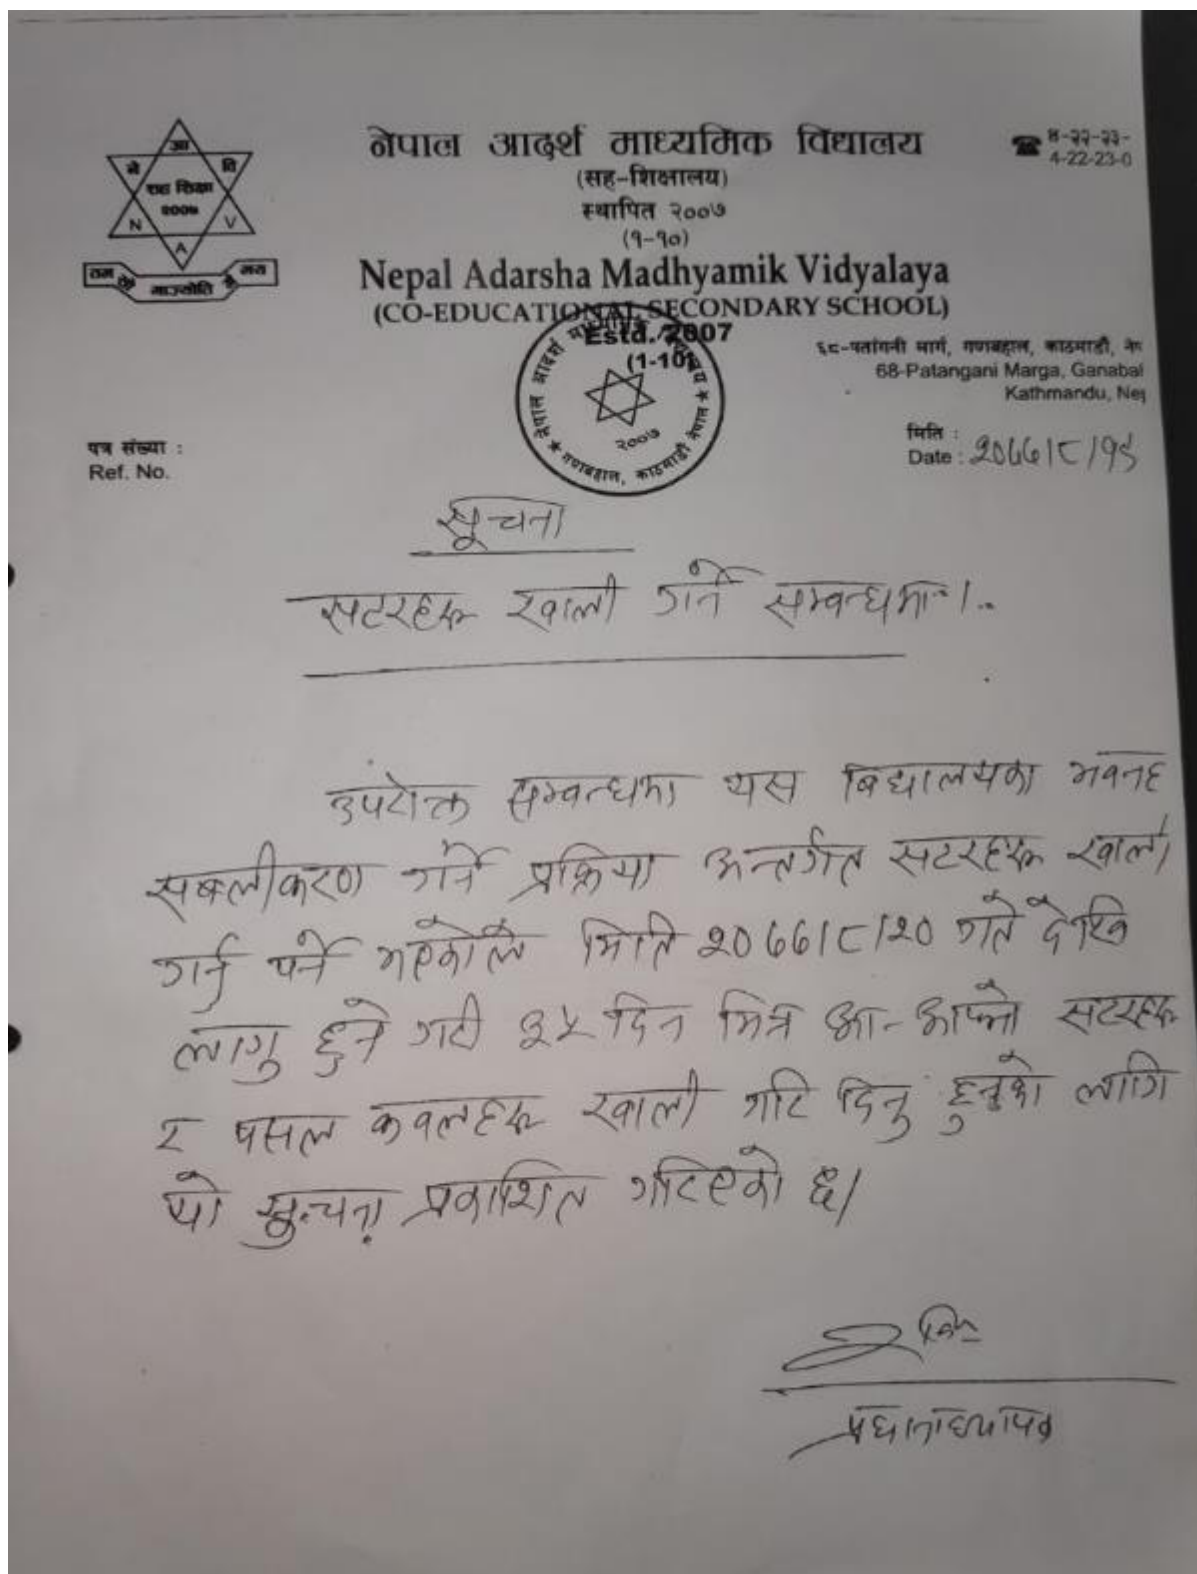 नेपाल आदर्श माध्यमिक विद्यालय
(सह-शिक्षालय)
स्थापित २००७
(१-१०)
Nepal Adarsha Madhyamik Vidyalaya
(CO-EDUCATIONAL SECONDARY SCHOOL)
Estd. 2007
(1-10)
ने आ वि
सह शिक्षा
२००७
N A V
☎ ४-२२-२३-
4-22-23-0
६८-पतांगनी मार्ग, गणबहाल, काठमाडौं, ने
68-Patangani Marga, Ganabal
Kathmandu, Nep
नेपाल आदर्श माध्यमिक विद्यालय
२००७
गणबहाल, काठमाडौं नेपाल
पत्र संख्या :
Ref. No.
मिति :
Date : २०७७।८।१९
सूचना
सटरहरू खाली गर्ने सम्बन्धमा।
उपरोक्त सम्बन्धमा यस बिद्यालयका भवनह
सबलीकरण गर्ने प्रक्रिया अन्तर्गत सटरहरू खाली
गर्नु पर्ने भएकोले मिति २०७७।८।२० गते देखि
लागु हुने गरी ३५ दिन भित्र आ-आफ्नो सटरहरू
र पसल कवलहरू खाली गरि दिनु हुनको लागि
यो सुचना प्रकाशित गरिएको छ।
प्रधानाध्यापक